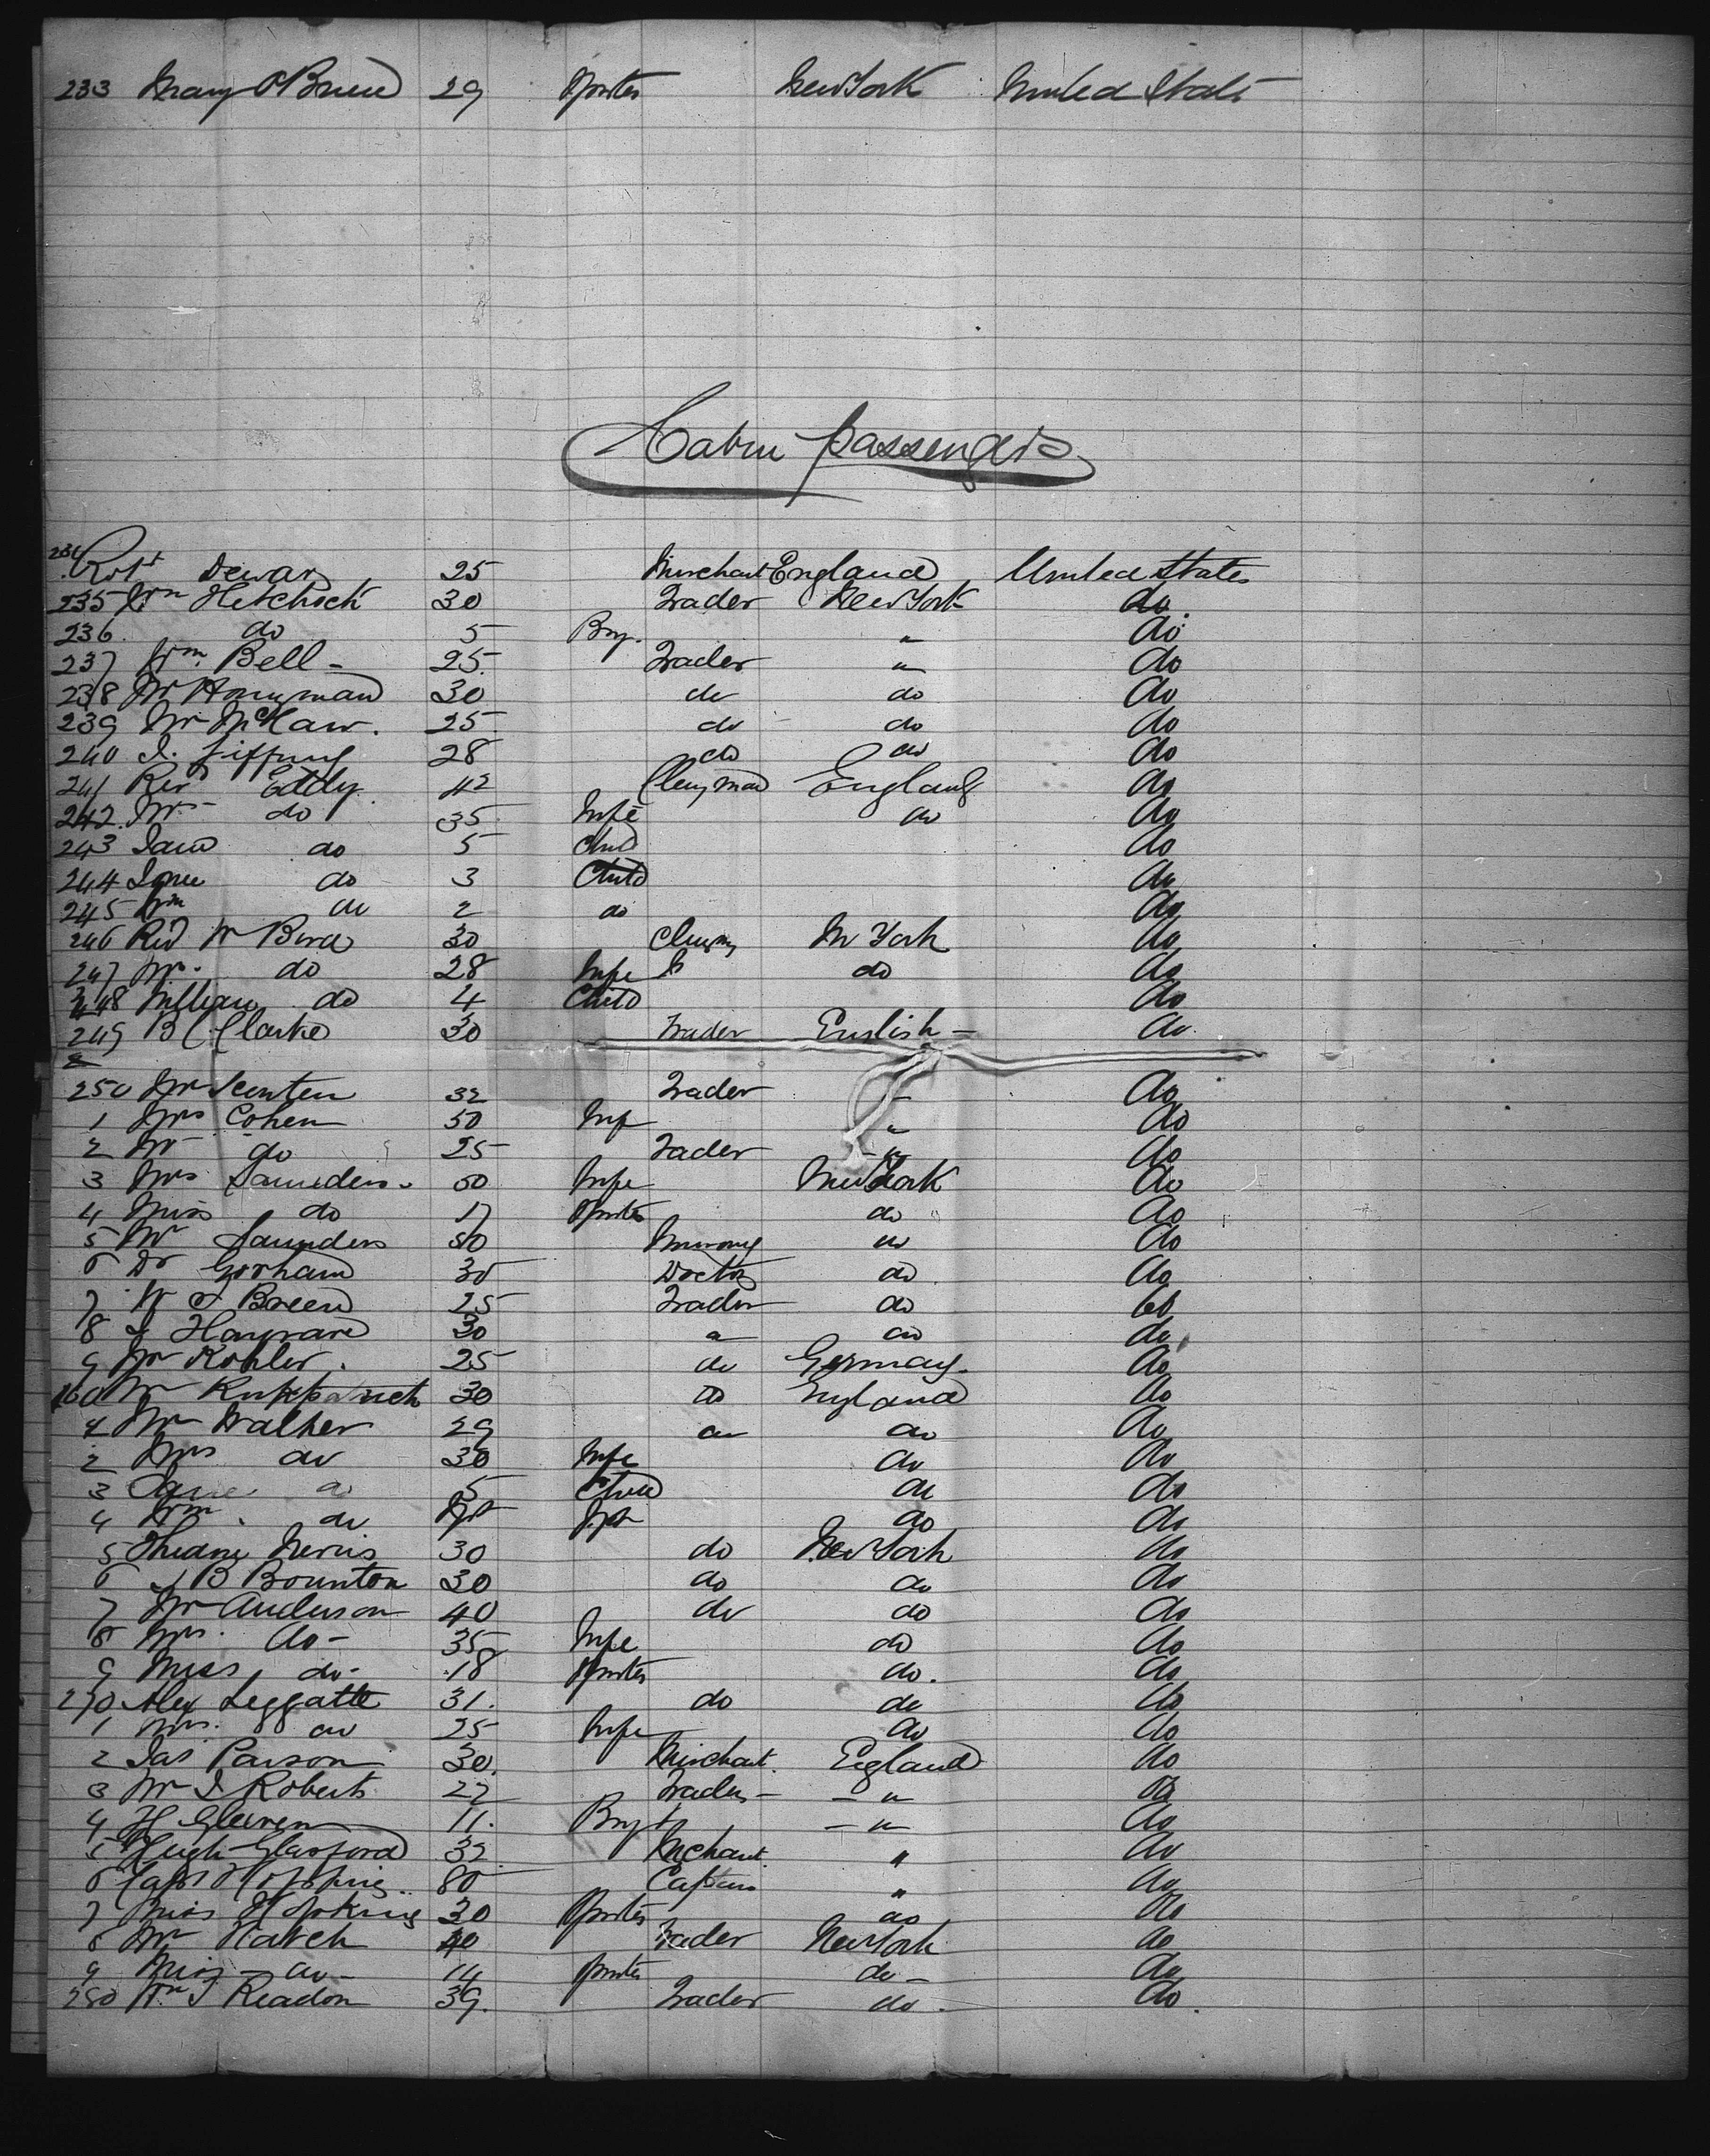 233 Mary O'Brien 29 Spinster New York United States
Cabin passengers
234 Robt Dewar 25 Merchant England United States
235 Wm Hetchock 30 Trader New York do.
236. do 5 Boy. " do
237 Wm Bell - 25. Trader " do
238 Mr Honyman 30 do do do
239 Mr McHaw. 25 do do do
240 28 do do do
241 Revd Eddy 42 Clergyman England do
242. Mrs do 35 Wife do do
243 do 5 Child do
244 do 3 Child do
245 Wm do 2 do do
246 Revd W Bird 30 N York do
247 Mrs. do 28 Wife do do
248 William do 4 Child do
249 B C Clarke 30 Trader English - do.
250 Mr 32 Trader " do
1 Mrs Cohen 50 Wife " do
2 Mr do 25 Trader " do
3 Mrs Saunders 50 Wife New York do
4 Miss do 17 Spinster do do
5 Mr Saunders 50 do do
6 Dr Gorham 30 Doctor do do
7 W J Breed 25 Trader do do
8 Hayward 30 " do do
9 Mr Kohler. 25 do Germany. do
260 Mr 30 do England do
1 Mr Walker 29 do do do
2 Mrs do 30 Wife do do
3 do 5 Child do do
4 Wm. do do do
5 Nevins 30 do New York do
6 J B Bounton 30 do do do
7 Mr Anderson 40 do do do
8 Mrs. do - 35 Wife do do
9 Miss do - 18 Spinster do. do
270 Alex Leggatte 31. do do do
1 Mrs. do 25 Wife do do
2 Jas Parson 30. Merchant. England do
3 Mr J Roberts 27 Trader - - " do
4 H Gleeven 11. Boy - " do
5 Hugh Glasford 32 Merchant. " do
6 Capt 80 Captain " do
7 Miss Hopkins 30 Spinster do do
8 Mr Hatch 40 Trader New York do
9 Miss - do - 14 Spinster do - do
280 Wm J Readon 39. Trader do. do.